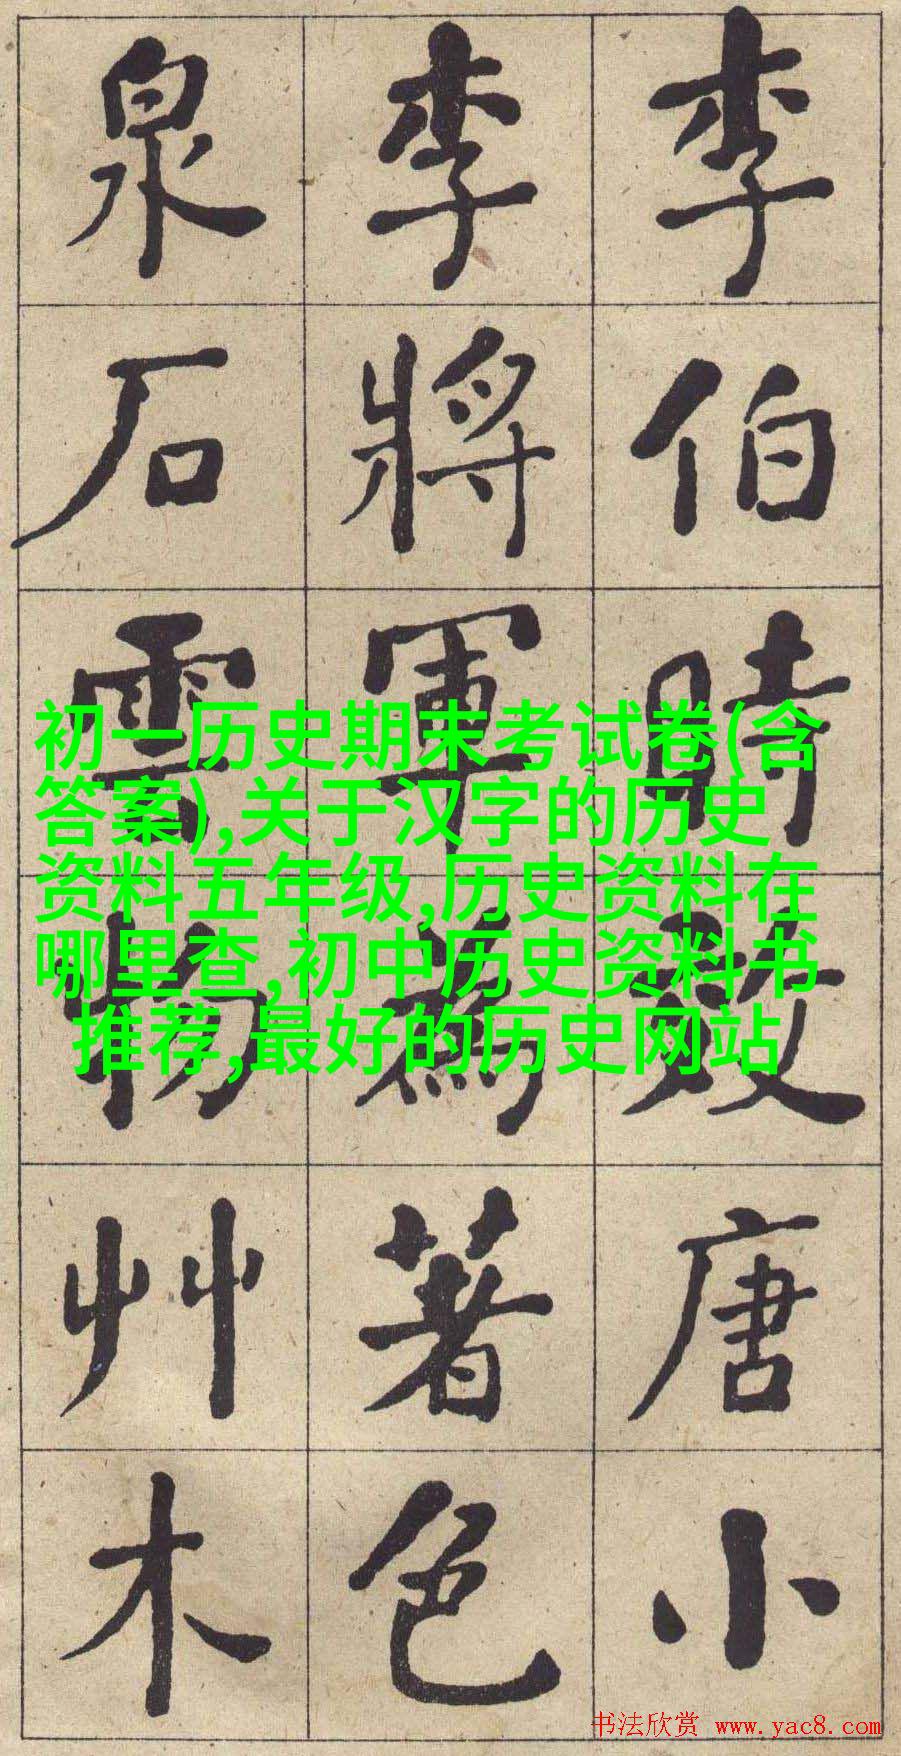 李伯時效唐小
李將軍為著色
泉石雲物艸木
初一历史期末考试卷(含
答案),关于汉字的历史
资料五年级,历史资料在
哪里查,初中历史资料书
推荐,最好的历史网站
书法欣赏 www.yac8.com